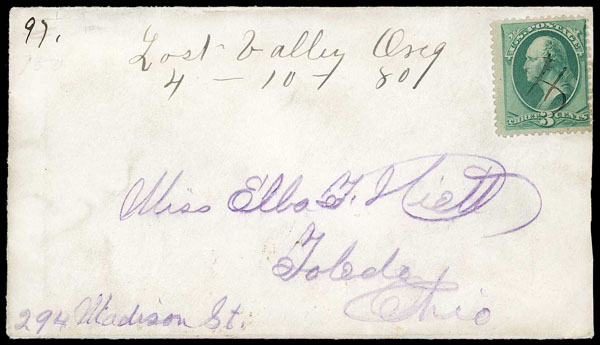 97.
Lost Valley Oreg
4 – 10 – 80
U.S. POSTAGE
THREE 3 CENTS
Miss Ella F. Hiett
Toledo,
Ohio
294 Madison St.